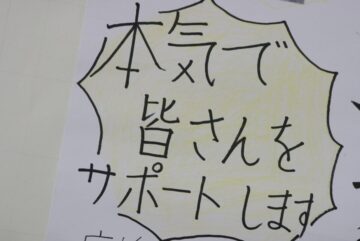 本気で
皆さんを
サポートします